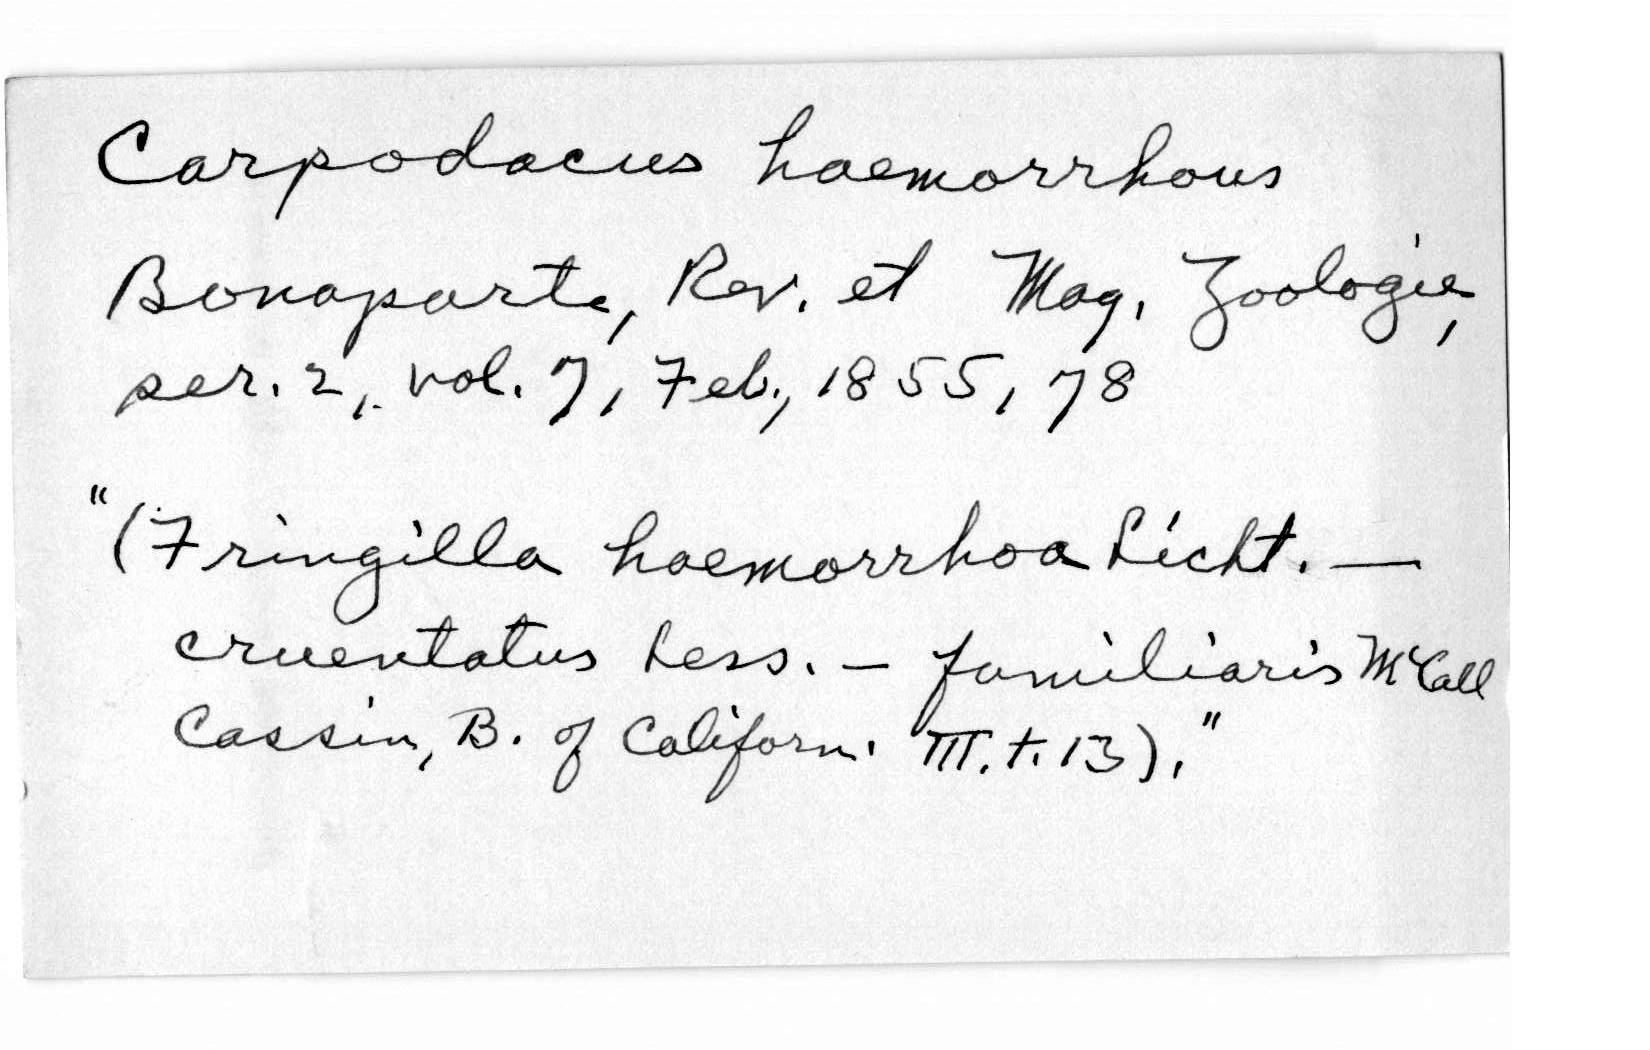 Carpodacus haemorrhous
Bonaparte, Rev. et Mag. Zoologie,
ser. 2, vol. 7, Feb., 1855, 78
"(Fringilla haemorrhoa Licht. —
cruentatus Less. — familiaris McCall
Cassin, B. of Californ. III. t. 13)."